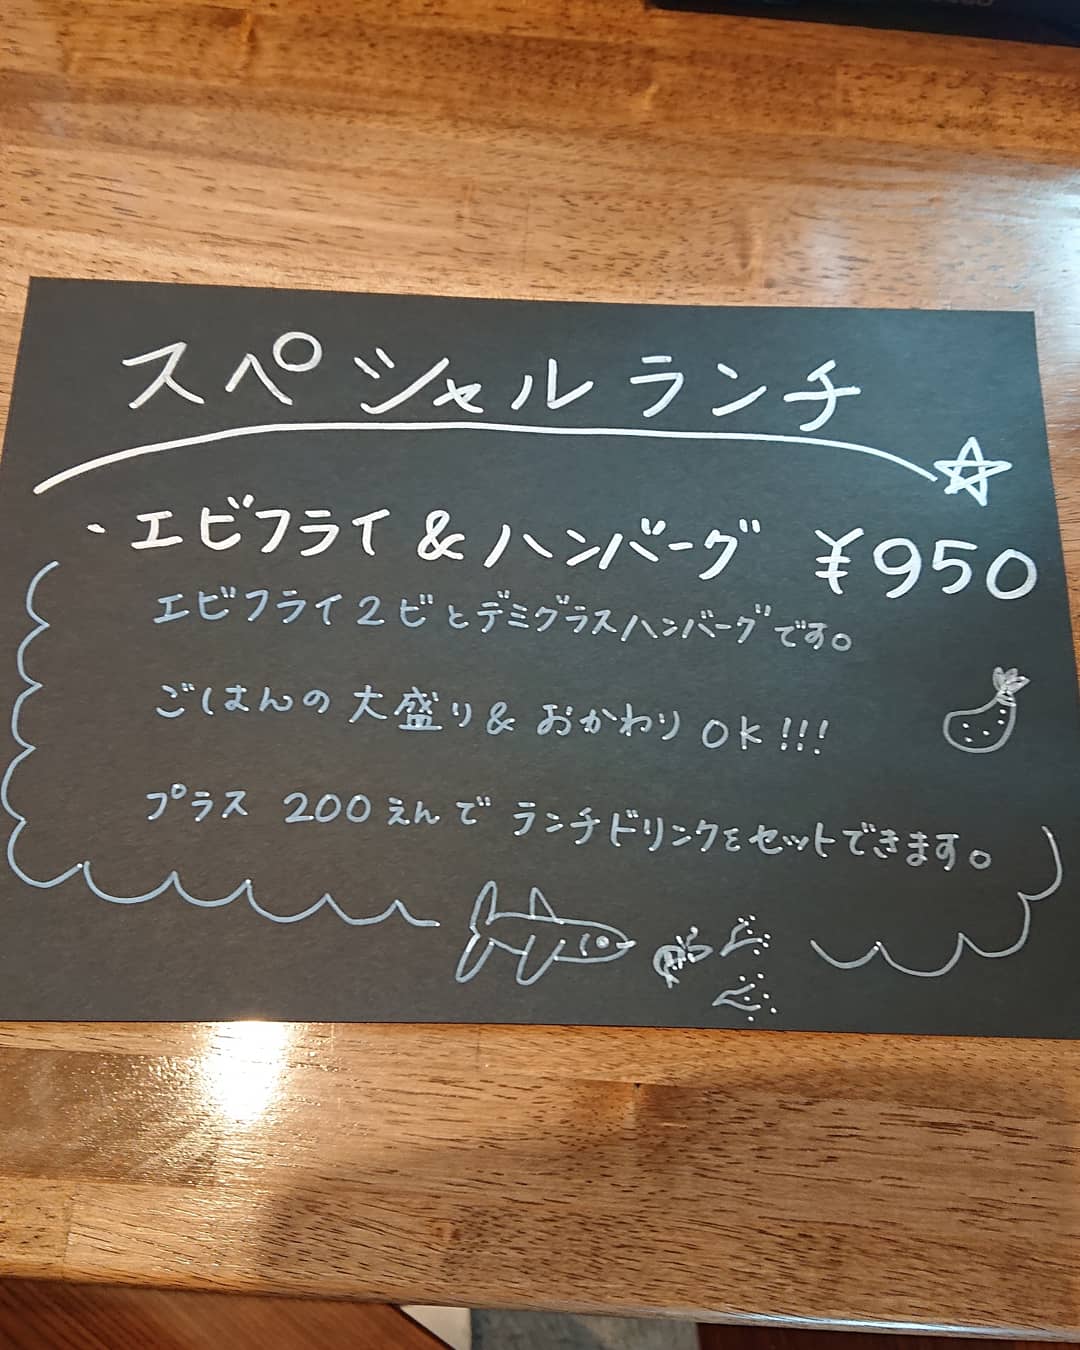 スペシャルランチ
・エビフライ&ハンバーグ ¥950
エビフライ2ビとデミグラスハンバーグです。
ごはんの大盛り&おかわりOK!!!
プラス 200えんで ランチドリンクをセットできます。